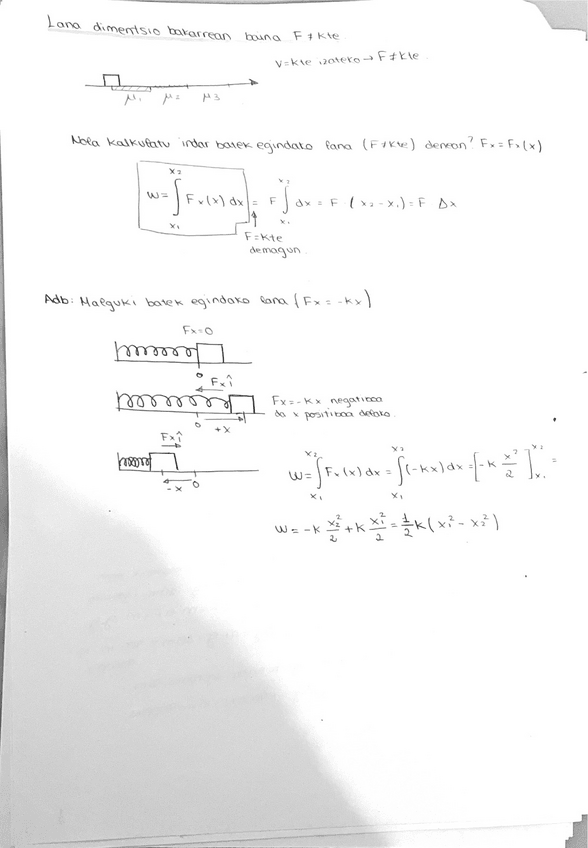 Lana dimentsio bakarrean baina F ≠ kte
v=kte izateko → F≠kte.
μ₁ μ₂ μ₃
Nola kalkulatu indar batek egindako lana (F≠kte) denean? Fx = Fx(x)
W = ∫_{x₁}^{x₂} Fx(x) dx = F ∫_{x₁}^{x₂} dx = F (x₂ - x₁) = F Δx
F=kte
demagun.
Adb: Malguki batek egindako lana (Fx = -kx)
Fx=0
0
Fx î
Fx=-kx negatiboa
da x positiboa delako.
0 +x
Fx î
-x 0
W = ∫_{x₁}^{x₂} Fx(x) dx = ∫_{x₁}^{x₂} (-kx) dx = [-k x²/2]_{x₁}^{x₂} =
W = -k x₂²/2 + k x₁²/2 = 1/2 k (x₁² - x₂²)